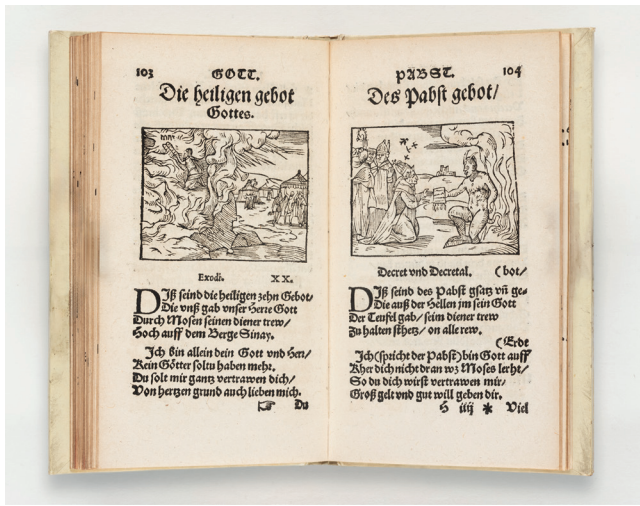 103 GOTT.
Die heiligen gebot
Gottes.
Exodi. XX.
DIß seind die heiligen zehn Gebot/
Die vnß gab vnser Herre Gott
Durch Mosen seinen diener trew/
Hoch auff dem Berge Sinay.
Jch bin allein dein Gott vnd Herr/
Kein Götter soltu haben mehr.
Du solt mir gantz vertrawen dich/
Von hertzen grund auch lieben mich.
☞ Du
PABST. 104
Des Pabst gebot/
Decret vnd Decretal. (bot/
DIß seind des Pabst gsatz vñ ge-
Die auß der Hellen jm sein Gott
Der Teufel gab/ seim diener trew
Zu halten sthetz/ on alle rew.
(Erdt
Jch (spricht der Pabst) bin Gott auff
Kher dich nicht dran wz Moses lerht/
So du dich wirst vertrawen mir/
Groß gelt vnd gut will geben dir.
H iiij * Viel